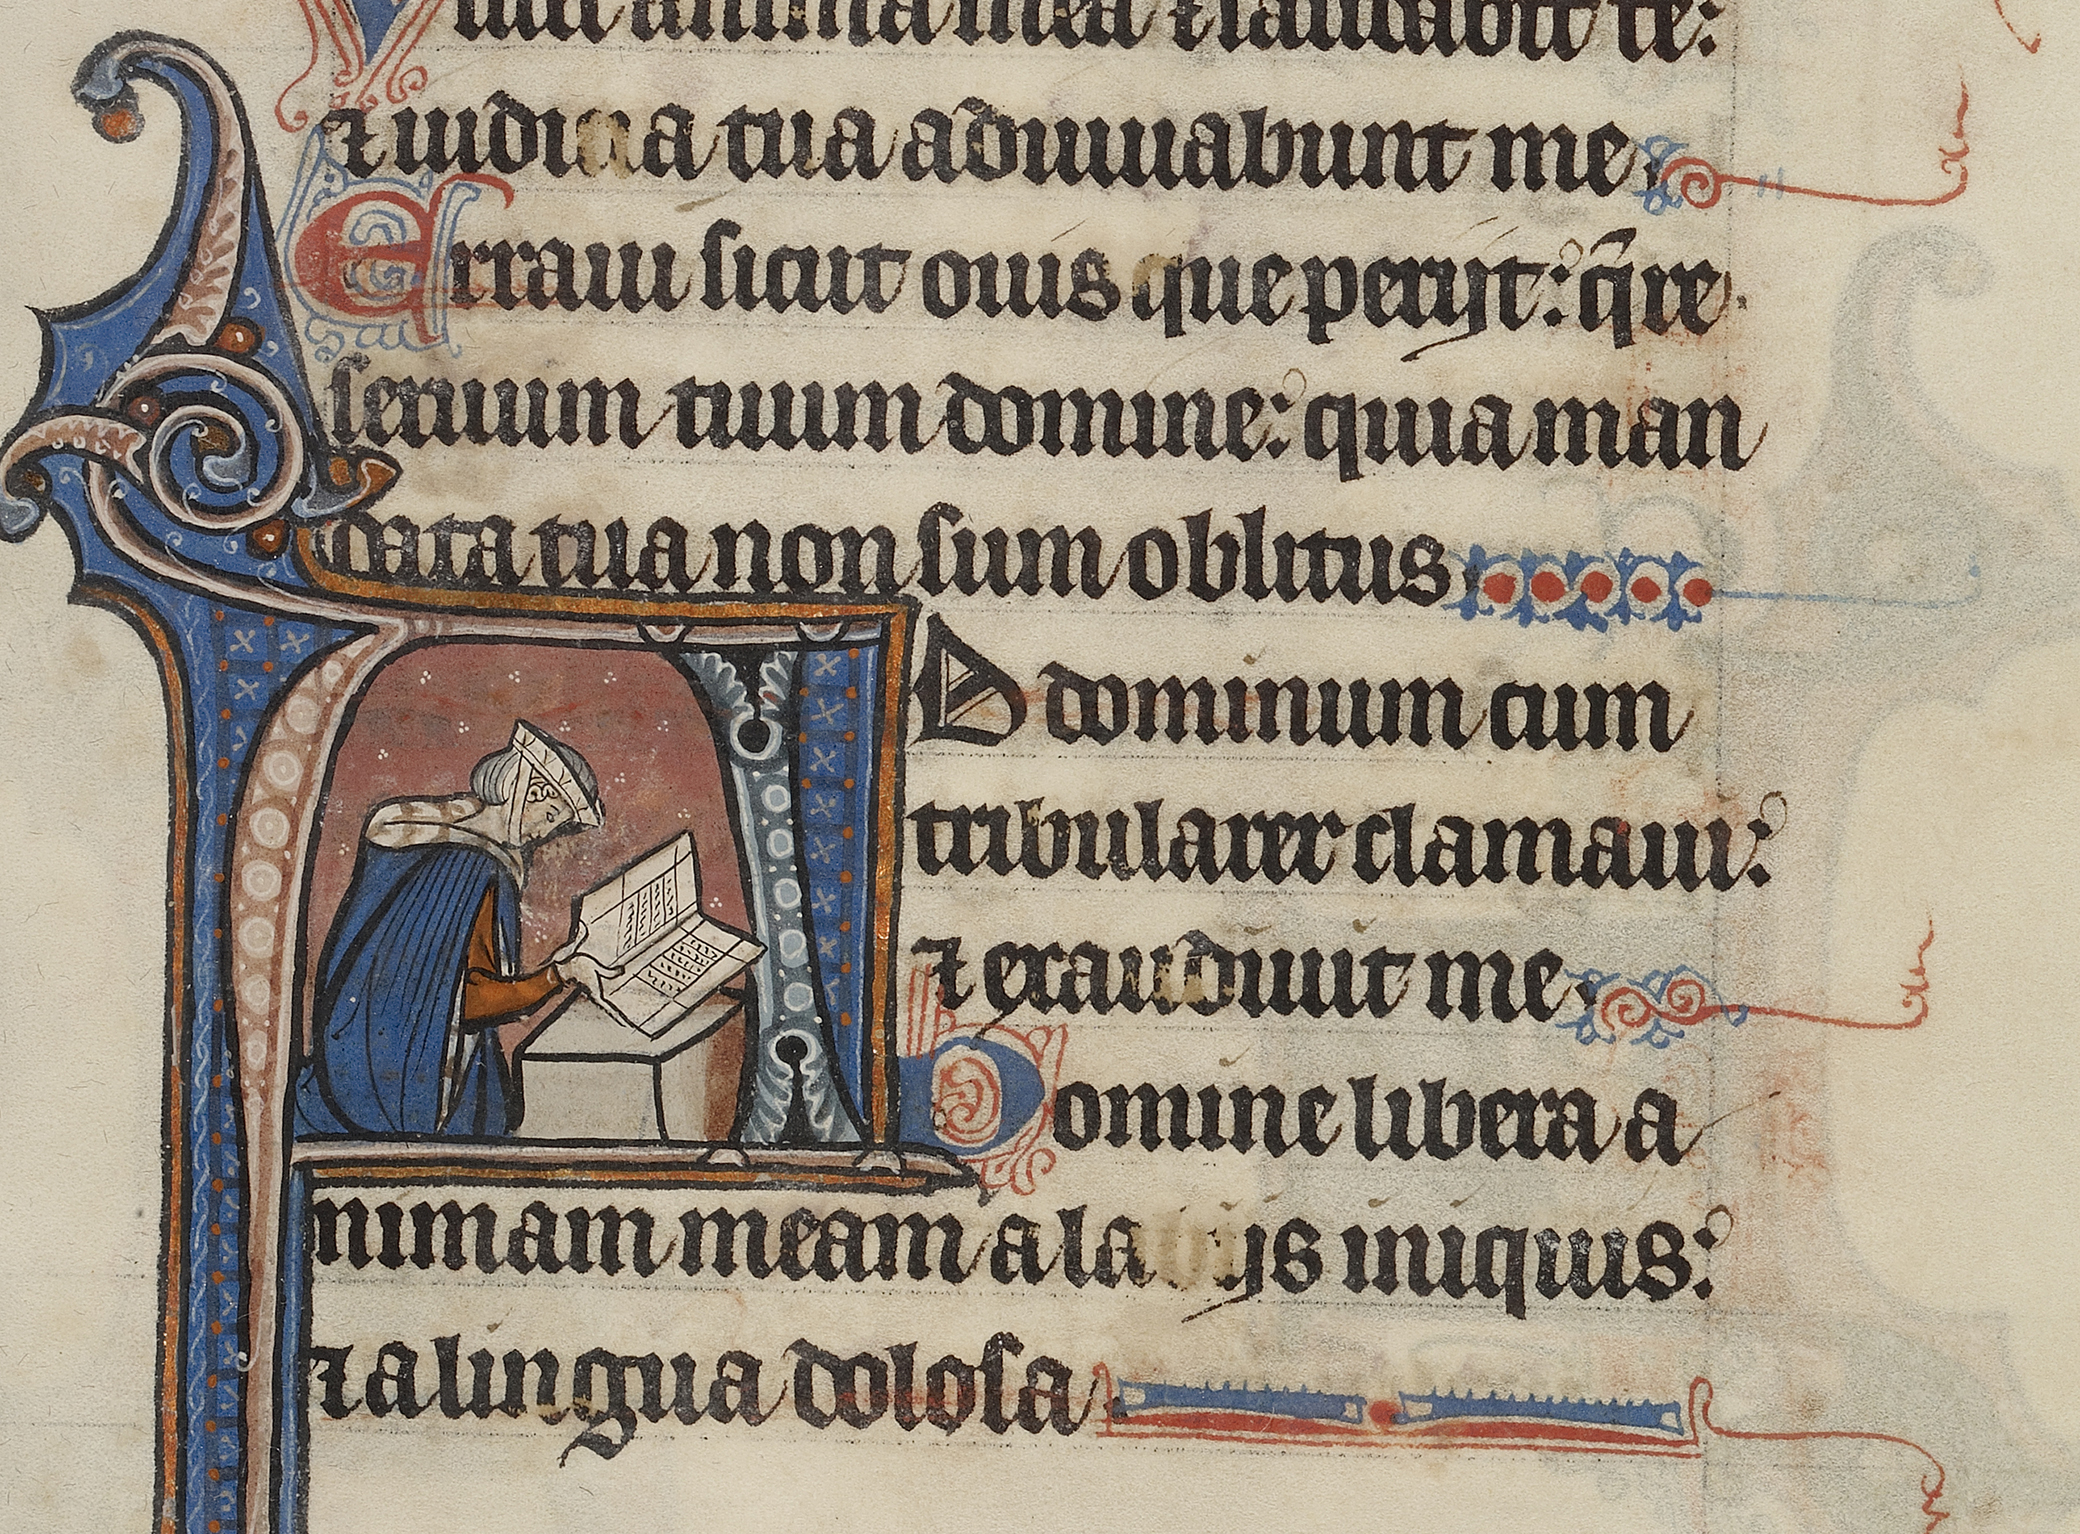 Uiuet anima mea ⁊ laudabit te:
⁊ iudicia tua adiuuabunt me
Erraui sicut ouis que perijt: q̄re
seruum tuum domine: quia man
data tua non sum oblitus
AD dominum cum
tribularer clamaui:
⁊ exaudiuit me
Domine libera a
nimam meam a labijs iniquis:
⁊ a lingua dolosa